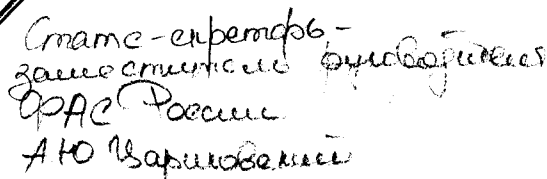 Статс-секретарь-
заместитель руководителя
ФАС России
А Ю Цариковский